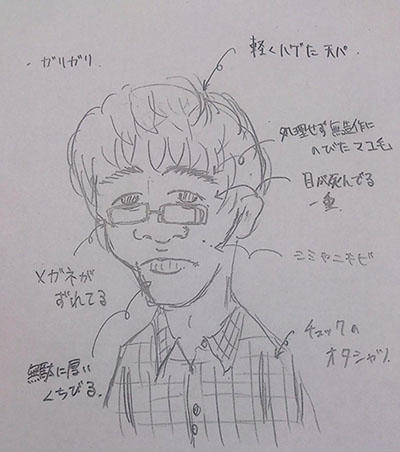 ・ガリガリ
軽くハゲた天パ
処理せず無造作に
のびたマユ毛
目が死んでる
一重
シミやニキビ
メガネが
ずれてる
チェックの
オタシャツ
無駄に厚い
くちびる。